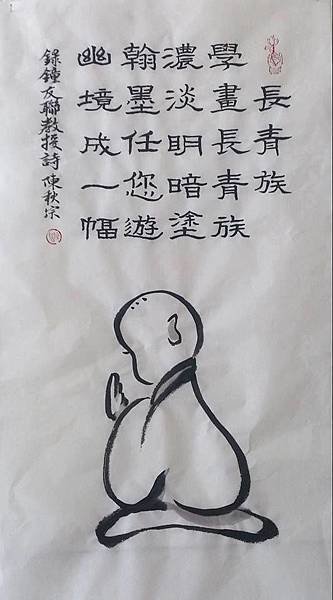 長青族
學畫長青族
濃淡明暗塗
翰墨任您遊
幽境成一幅
錄鐘友聯教授詩 陳秋宗